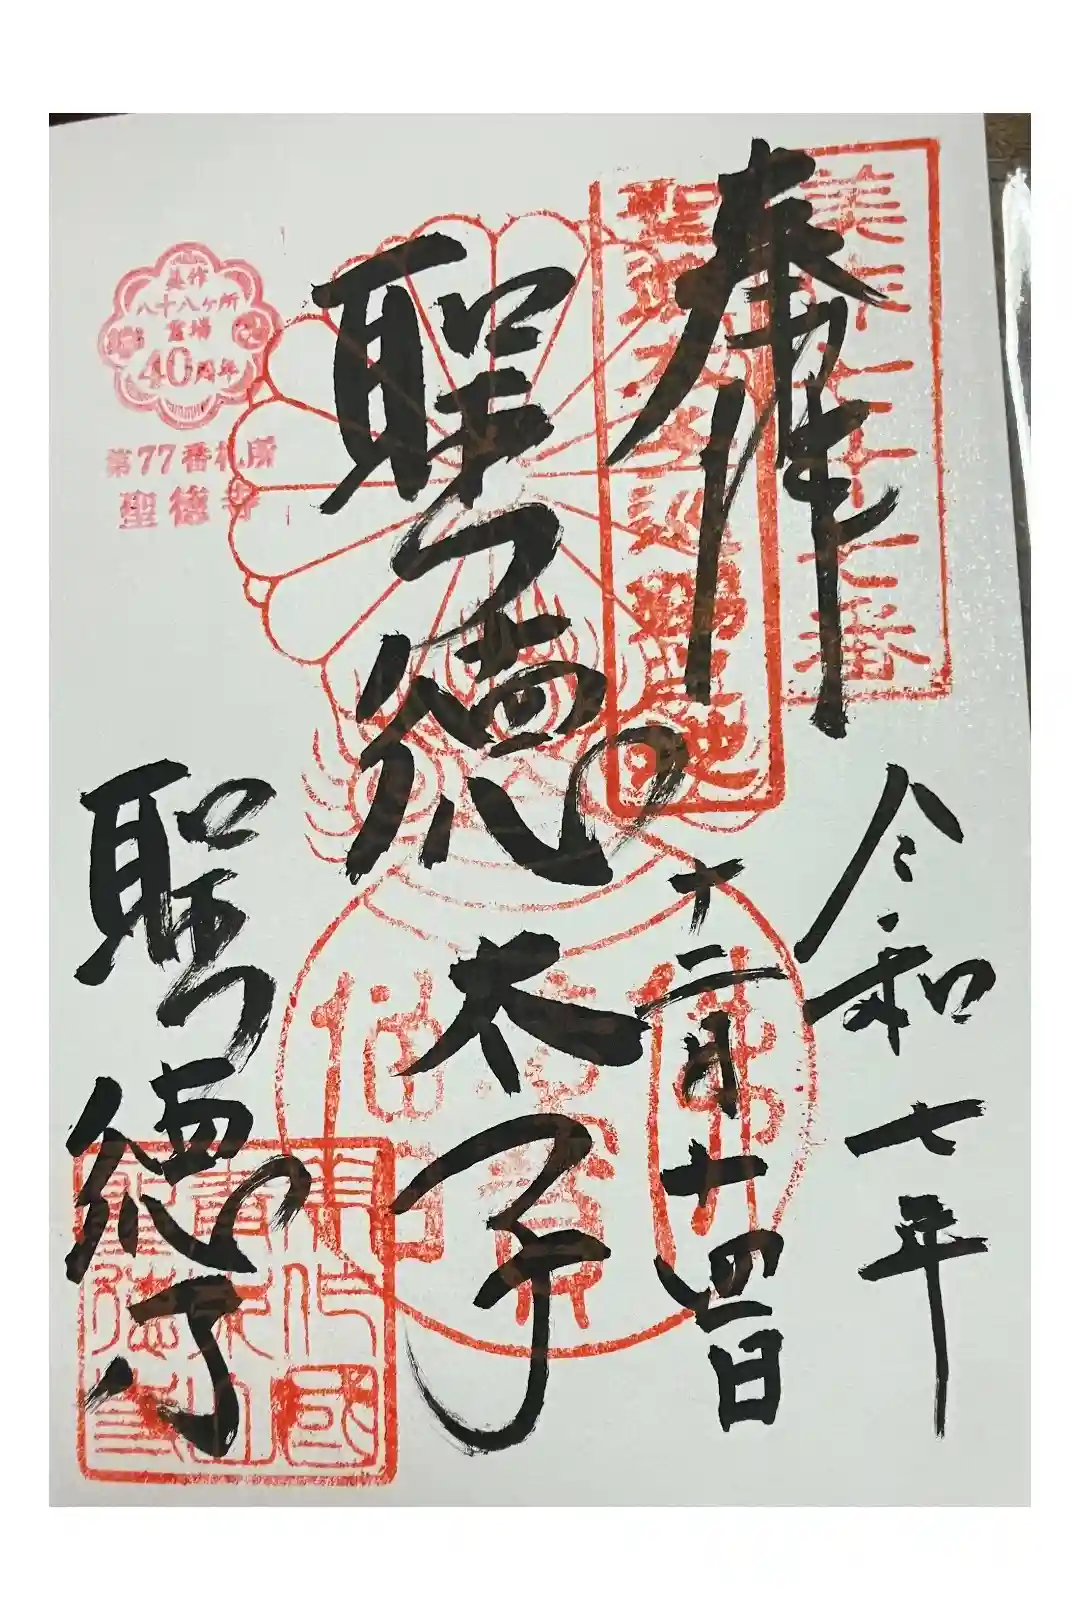 奉拝
美作七十七番
聖徳太子巡歴聖地
令和七年
十二月十四日
聖徳太子
美作
八十八ヶ所
霊場
40周年
第77番札所
聖徳寺
聖徳寺